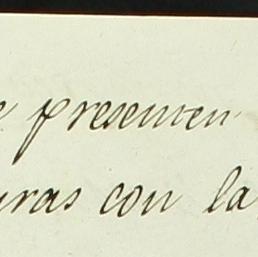 e presenten
uras con la